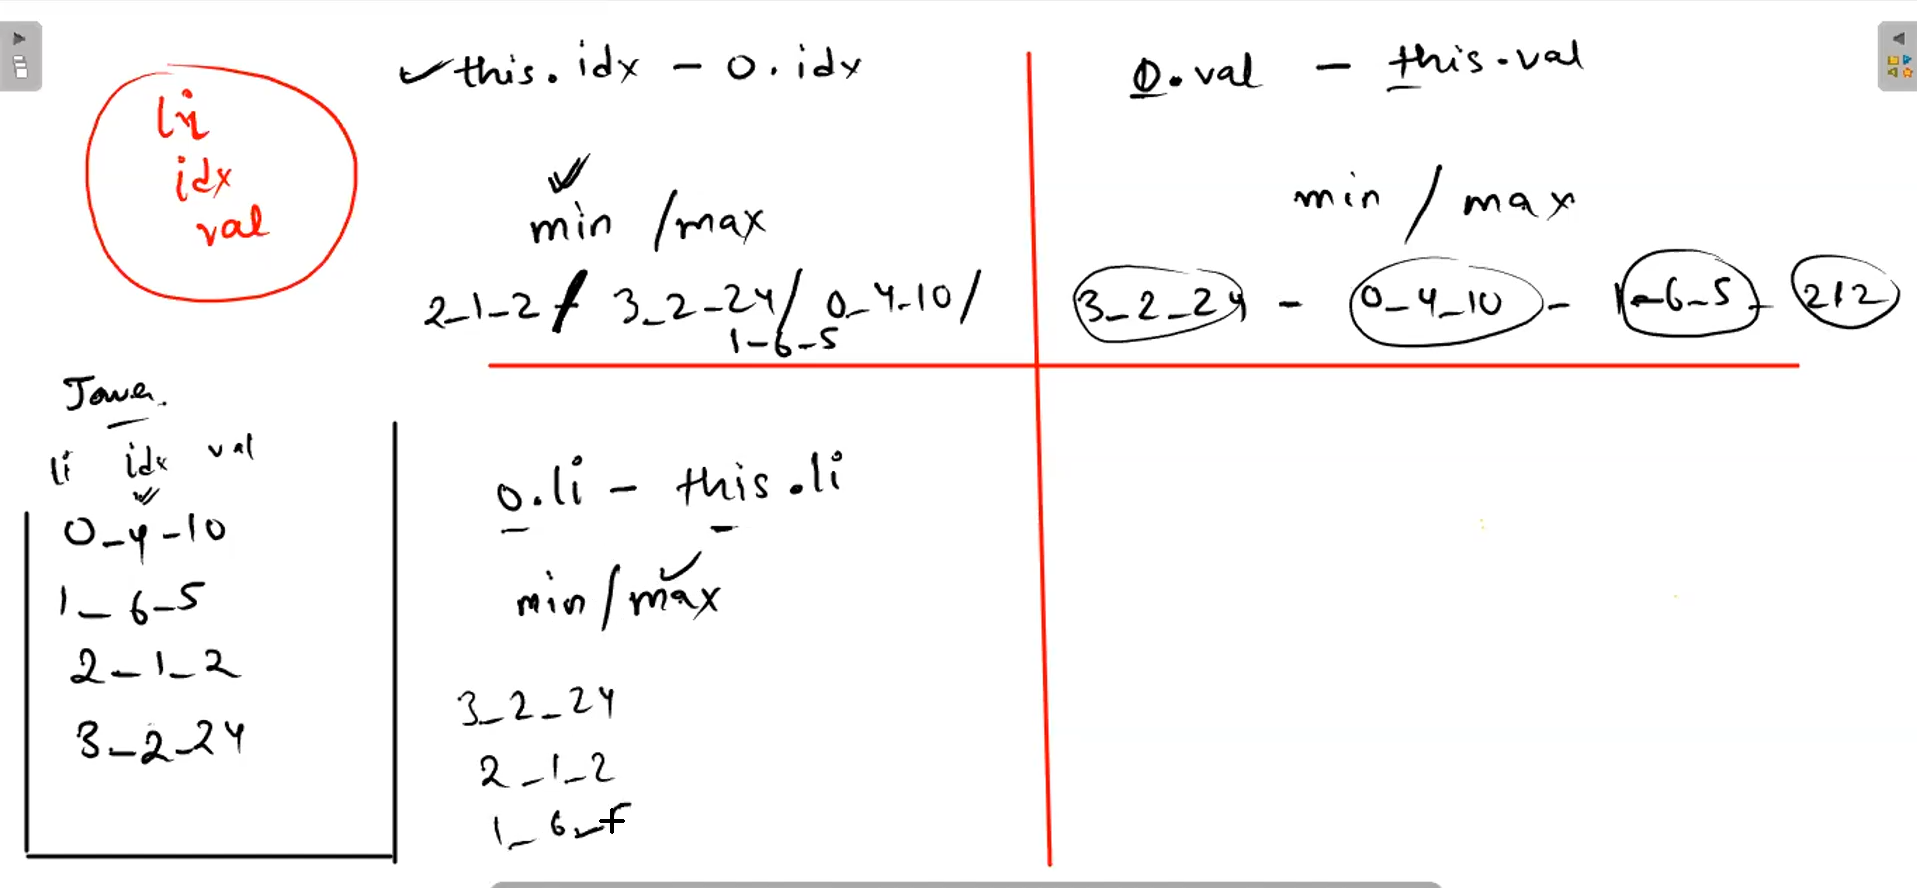 li
idx
val
this.idx - o.idx
min /max
2_1_2 / 3_2_24/ 0_4_10/
1_6_5
O.val - this.val
min / max
3_2_24 - 0_4_10 - 1_6_5 - 212
li idx val
0_4_10
1_6_5
2_1_2
3_2_24
o.li - this.li
min/max
3_2_24
2_1_2
1_6_